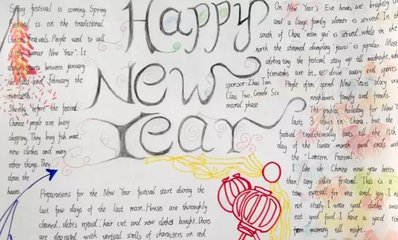 Happy
New
Year
Spring festival is coming. Spring
is on the traditional
festivals. People used to call
Lunar New Year". It
between January
and February the
Shortly before the festival
Chinese people are busy
shopping. They buy fish meat,
new clothes and many
other things. They
clean the
houses
Preparations for the New Year festival start during the
last few days of the last moon. Houses are thoroughly
cleaned, debts repaid, hair cut and new clothes bought. Doors
are decorated with vertical scrolls of characters on red
sponsor: Zhao Tian
Class Two, Grade Six
second phase
On New Year's Eve houses are brightly
and a large family dinner is served. In the
south of China nian gao is served, while in the
north the steamed dumpling is popular. Most
celebrating the festival stay up till midnight, when
fireworks are lit, to drive away evil spirits
People often spend New Year's day
neighbours, family and friends
The public holiday for New Year
lasts 3 days in China, but the
festival traditionally lasts till the 15th
day of the lunar month and ends
the "Lantern Festival"
I like the Chinese new year better
than any other festival. This is a
time especial for me and you. I need
not study, I wear good clothes and
eat good food. I have a good
from morning all night.